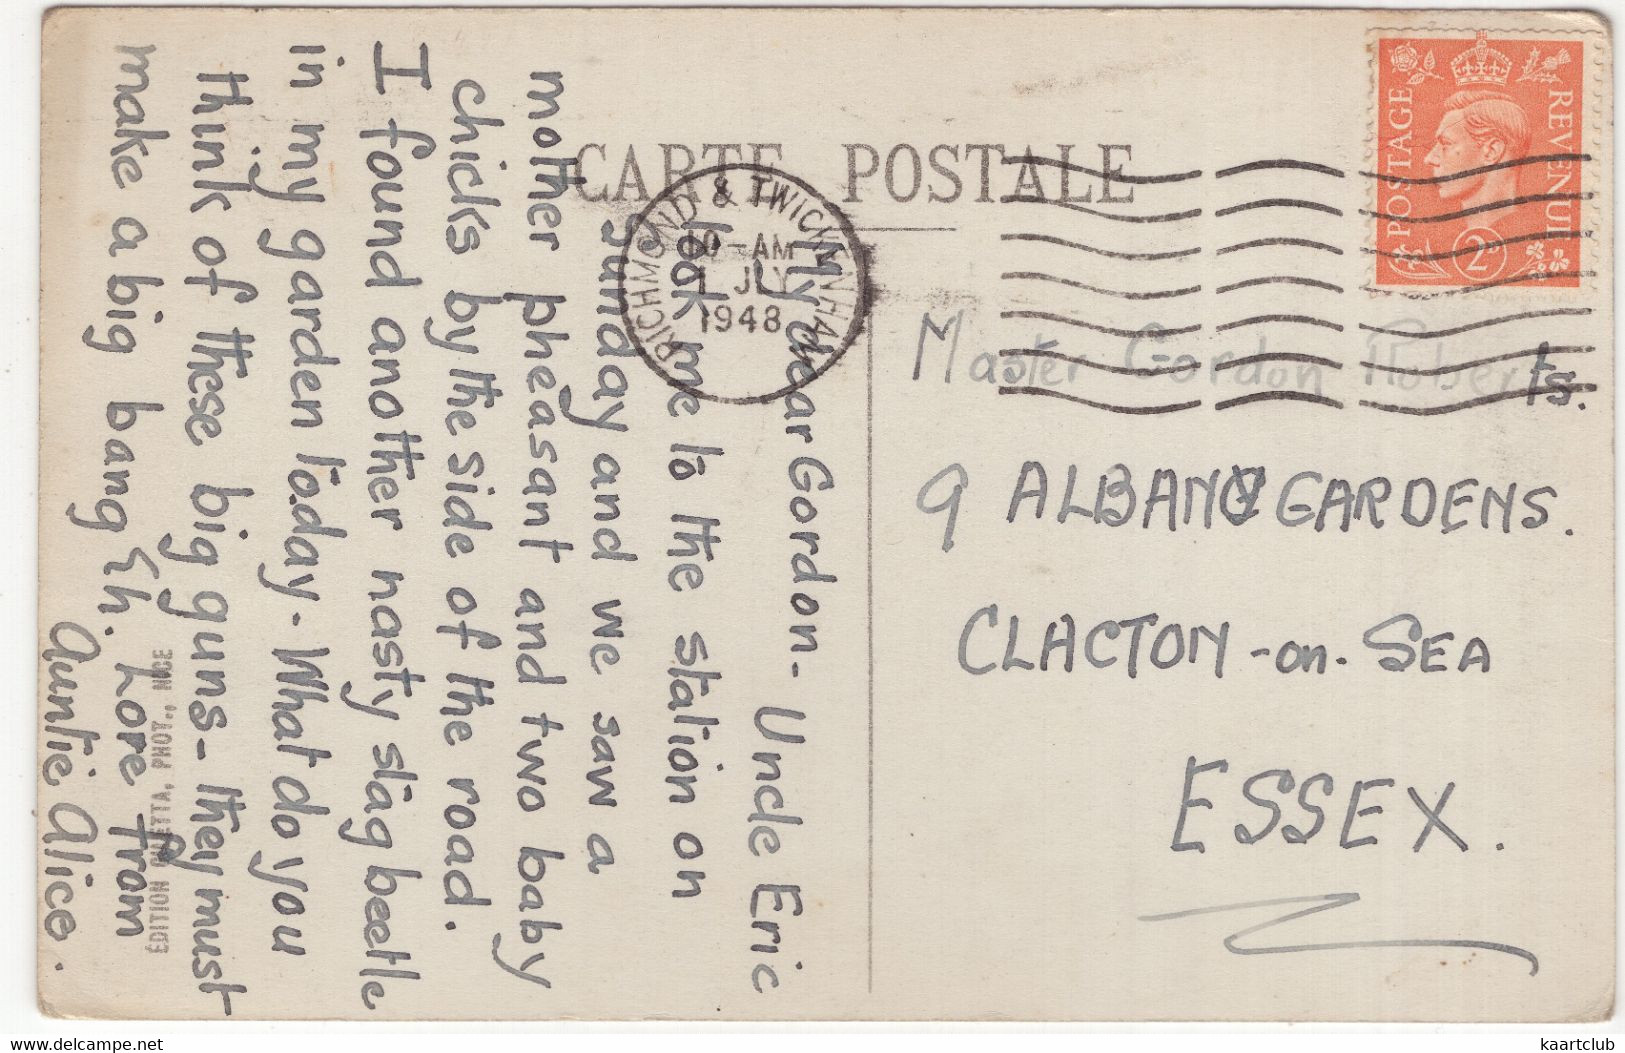 CARTE POSTALE
POSTAGE
REVENUE
2D
RICHMOND & TWICKENHAM
10-AM
1 JLY
1948
Master Gordon Roberts.
9 ALBANY GARDENS.
CLACTON-on-SEA
ESSEX.
My dear Gordon- Uncle Eric
took me to the station on
Sunday and we saw a
mother pheasant and two baby
chicks by the side of the road.
I found another nasty stag beetle
in my garden to.day-What do you
think of these big guns- they must
make a big bang Eh. Love from
Auntie Alice.
EDITION GILETTA, PHOT., NICE
www.delcampe.net
kaartclub